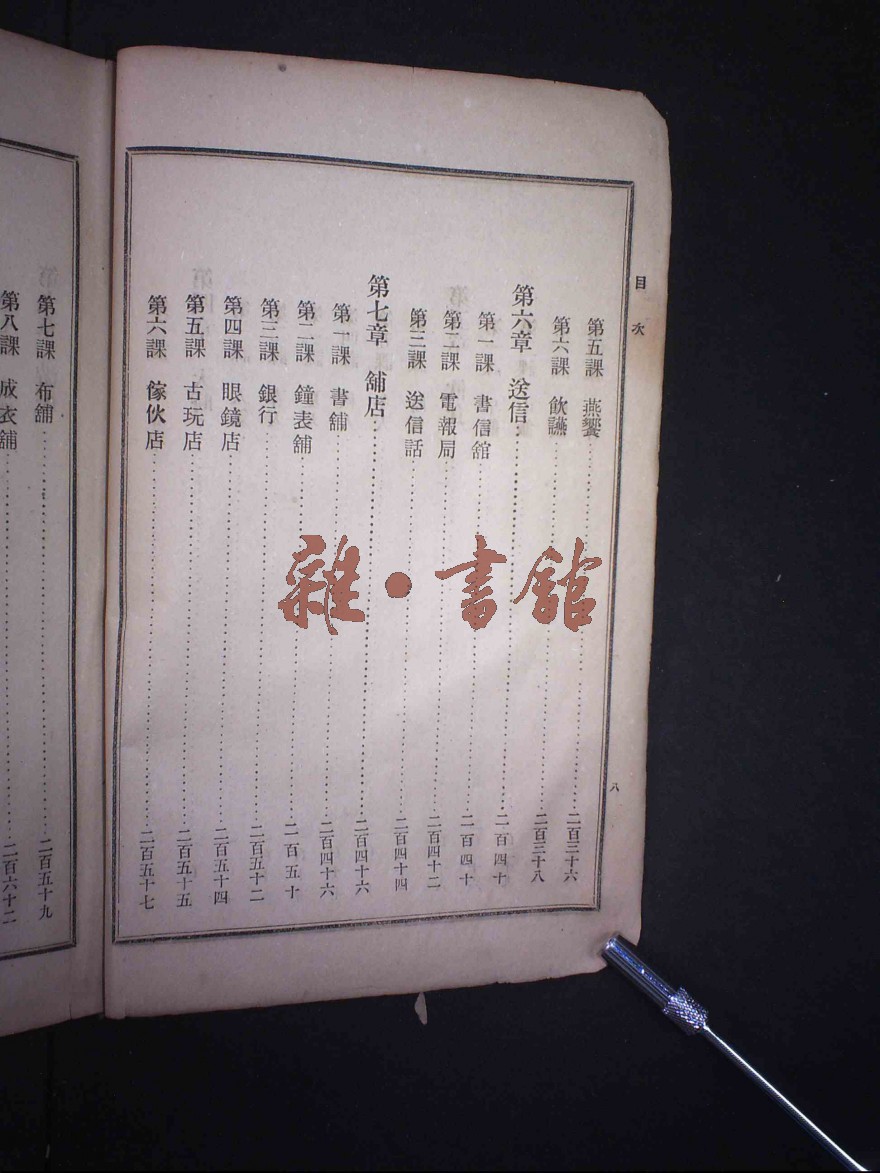 目次
第五課 燕饗 二百三十六
第六課 飲讌 二百三十八
第六章 送信 二百四十
第一課 書信舘 二百四十
第二課 電報局 二百四十二
第三課 送信話 二百四十四
第七章 舖店 二百四十六
第一課 書舖 二百四十六
第二課 鐘表舖 二百五十
第三課 銀行 二百五十二
第四課 眼鏡店 二百五十四
第五課 古玩店 二百五十五
第六課 傢伙店 二百五十七
八
第七課 布舖 二百五十九
第八課 成衣舖 二百六十二
雜·書館